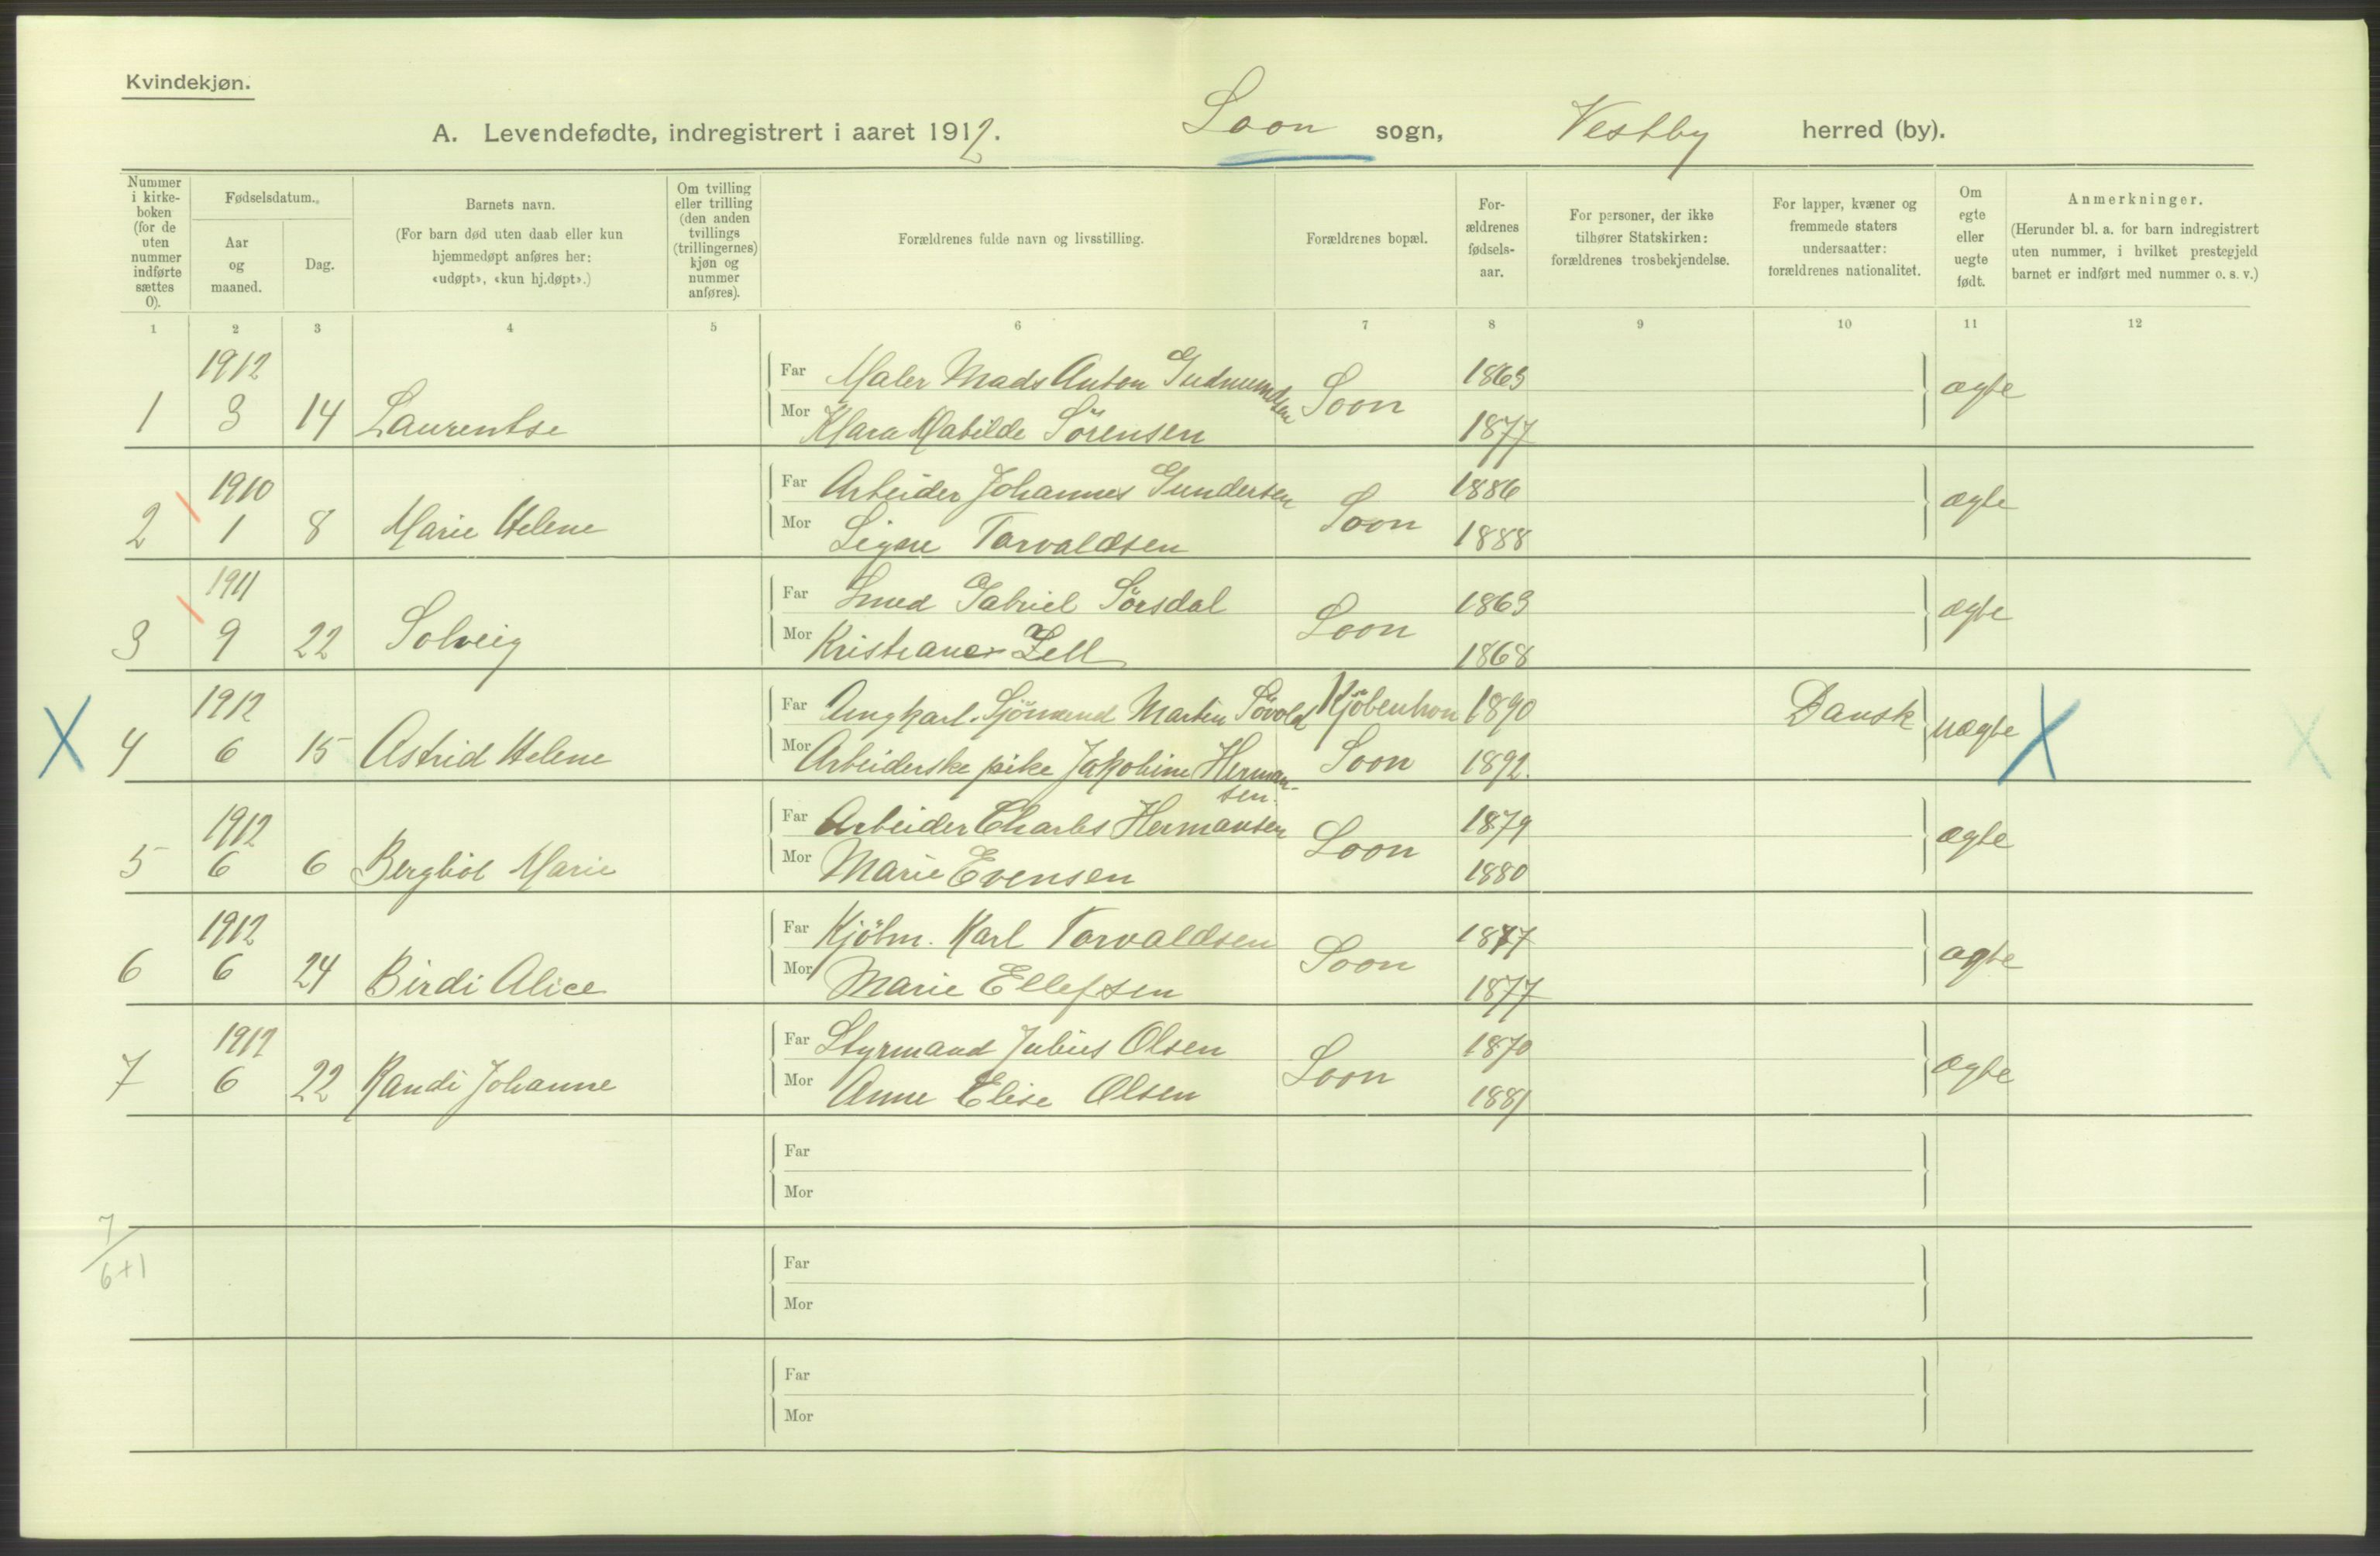 Kvindekjøn.
A. Levendefødte, indregistrert i aaret 1912. Soon sogn, Vestby herred (by).
Nummer i kirke-boken (for de uten nummer indførte sættes 0).
Fødselsdatum.
Aar og maaned.
Dag.
Barnets navn.
(For barn død uten daab eller kun hjemmedøpt anføres her: «udøpt», «kun hj.døpt».)
Om tvilling eller trilling (den anden tvillings (trillingernes) kjøn og nummer anføres).
Forældrenes fulde navn og livsstilling.
Forældrenes bopæl.
For-ældrenes fødsels-aar.
For personer, der ikke tilhører Statskirken: forældrenes trosbekjendelse.
For lapper, kvæner og fremmede staters undersaatter: forældrenes nationalitet.
Om egte eller uegte født.
Anmerkninger.
(Herunder bl. a. for barn indregistrert uten nummer, i hvilket prestegjeld barnet er indført med nummer o. s. v.)
1 2 3 4 5 6 7 8 9 10 11 12
1912 Far Maler Mads Anton Gudmundsen Soon 1863 ægte
1 3 14 Laurentse Mor Klara Matilde Sörensen 1877
1910 Far Arbeider Johannes Gundersen Soon 1886 ægte
2 1 8 Marie Helene Mor Signe Torvaldsen 1888
1911 Far Smed Gabriel Sörsdal Soon 1863 ægte
3 9 22 Solveig Mor Kristiane Zell 1868
1912 Far Ungkarl. Sjömand Martin Sövold Kjöbenhvn 1890 Dansk uægte
X 4 6 15 Astrid Helene Mor Arbeiderske pike Jakobine Herman-sen. Soon 1892. X X
1912 Far Arbeider Charles Hermansen Soon 1879 ægte
5 6 6 Bergliot Marie Mor Marie Evensen 1880
1912 Far Kjöbm. Karl Torvaldsen Soon 1877 ægte
6 6 24 Birdi Alice Mor Marie Ellefsen 1877
1912 Far Styrmand Julius Olsen Soon 1870 ægte
7 6 22 Randi Johanne Mor Anne Elise Olsen 1881
Far
Mor
7
6+1
Far
Mor
Far
Mor